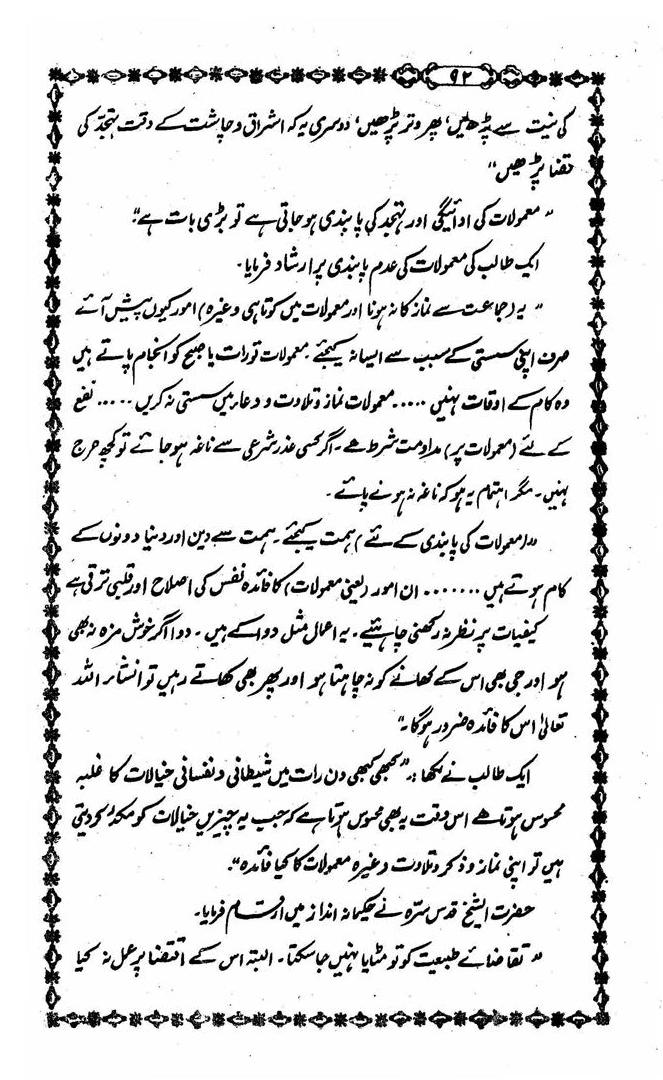 ۹۲
کی نیت سے پڑھیں، پھر وتر پڑھیں، دوسری یہ کہ اشراق و چاشت کے وقت تہجّد کی
قضا پڑھیں"
" معمولات کی ادائیگی اور تہجد کی پابندی ہو جاتی ہے تو بڑی بات ہے"۔
ایک طالب کی معمولات کی عدم پابندی پر ارشاد فرمایا۔
" یہ (جماعت سے نماز کا نہ ہونا اور معمولات میں کوتاہی وغیرہ) امور کیوں پیش آئے
صرف اپنی سستی کے سبب سے ایسا نہ کیجئے۔ معمولات تو رات یا صبح کو انجام پاتے ہیں
وہ کام کے اوقات نہیں ..... معمولات نماز و تلاوت و دعا میں سستی نہ کریں ..... نفع
کے لئے (معمولات پر) مداومت شرط ہے۔ اگر کسی عذر شرعی سے ناغہ ہو جائے تو کچھ حرج
نہیں۔ مگر اہتمام یہ ہو کہ ناغہ نہ ہونے پائے۔
" (معمولات کی پابندی کے لئے) ہمت کیجئے۔ ہمت سے دین اور دنیا دونوں کے
کام ہوتے ہیں ....... ان امور (یعنی معمولات) کا فائدہ نفس کی اصلاح اور قلبی ترقی ہے
کیفیات پر نظر نہ رکھنی چاہئیے۔ یہ اعمال مثل دوا کے ہیں۔ دوا اگر خوش مزہ نہ بھی
ہو اور جی بھی اس کے کھانے کو نہ چاہتا ہو اور پھر بھی کھاتے رہیں تو انشاء اللہ
تعالیٰ اس کا فائدہ ضرور ہوگا۔"
ایک طالب نے لکھا :۔ "کبھی کبھی دن رات میں شیطانی و نفسانی خیالات کا غلبہ
محسوس ہوتا ہے اس وقت یہ بھی محسوس ہوتا ہے کہ جب یہ چیزیں خیالات کو مکدر کر دیتی
ہیں تو اپنی نماز و ذکر و تلاوت وغیرہ معمولات کا کیا فائدہ"۔
حضرت الشیخ قدس سرّہ نے حکیمانہ انداز میں ارقام فرمایا۔
" تقاضائے طبیعت کو تو مٹایا نہیں جا سکتا۔ البتہ اس کے اقتضا پر عمل نہ کیا